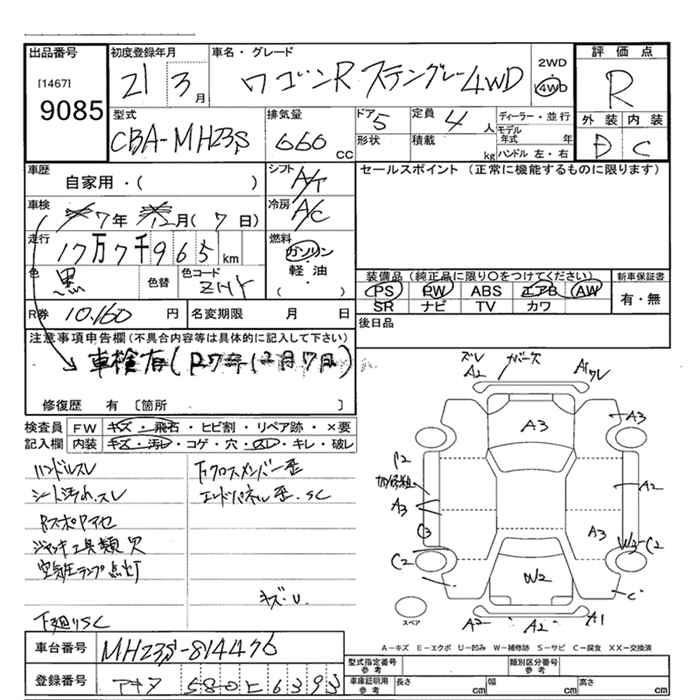 出品番号 初度登録年月 車名・グレード 2WD 評価点
[1467] 21 3月 ワゴンR スティングレー4WD ・4WD R
9085 外装 内装
型式 排気量 ドア 5 定員 4人 ディーラー・並行 D C
CBA-MH23S 660 CC 形状 積載 kg モデル年式 年
ハンドル 左・右
車歴 シフト セールスポイント (正常に機能するものに限ります)
自家用・( ) A/T
車検 冷房
7年 12月( 7 日) A/C
走行 燃料
17万7千965 km ガソリン
色 黒 色替 色コード ZNY ・軽油・
( ) 装備品(純正品に限り○をつけてください) 新車保証書
PS PW ABS エアB AW 有・無
SR ナビ TV カワ
R券 10,160円 名変期限 月 日 後日品
注意事項申告欄(不具合内容等は具体的に記入して下さい)
→車検有(R7年12月7日)
修復歴 有 [箇所 ]
検査員 FW キズ・飛石・ヒビ割・リペア跡・×要
記入欄 内装 キズ・汚レ・コゲ・穴・スレ・キレ・破レ
ハンドルスレ 下クロスメンバー歪
シート汚れ.スレ エンドパネル歪.SC
ジャッキ工具類欠
空気圧ランプ点灯
キズU.
下廻りSC
ズレ A2
A1 ワレ
A3
A3
P2
A2
A3
A3
C3
C2
W2-C2
W2
C
A2
A2
A1
スペア
A-キズ E-エクボ U-凹み W-補修跡 S-サビ C-腐食 XX-交換済
車台番号 MH23S-814476
登録番号 580 ヒ 6393
型式指定番号 参考 類別区分番号 参考
車庫証明用 参考 長さ cm 幅 cm 高さ cm